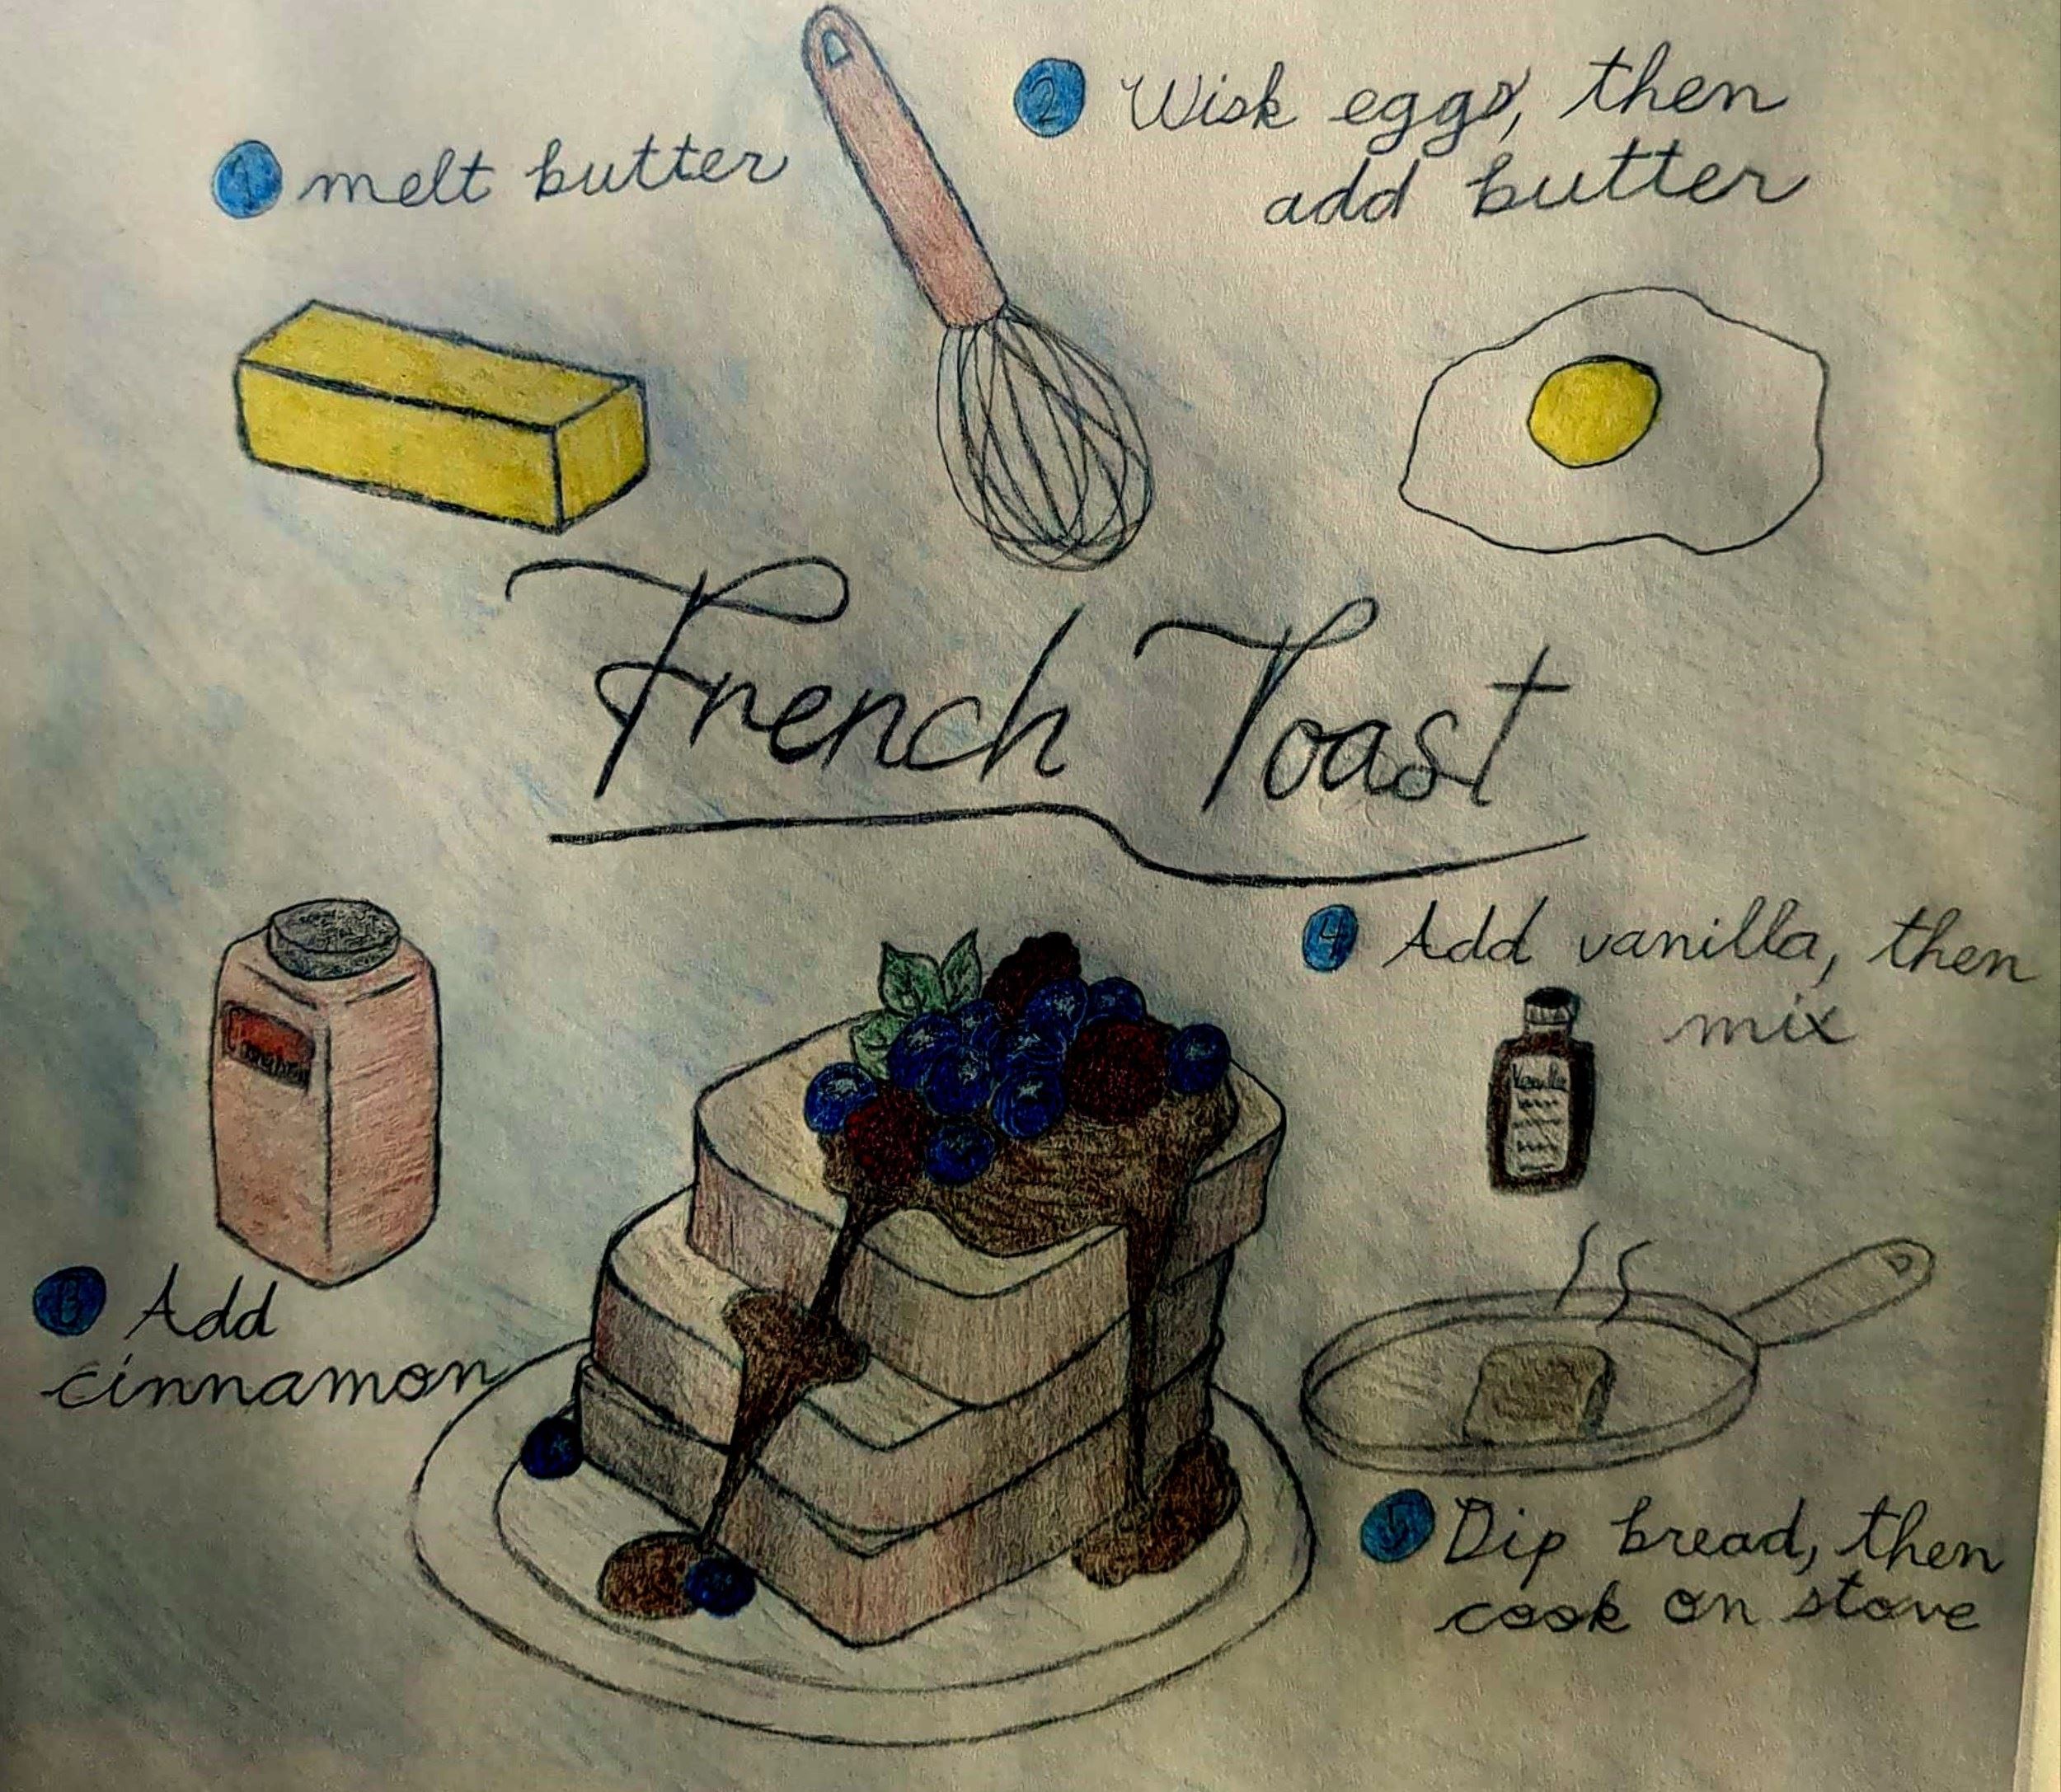 1 melt butter
2 Wisk eggs, then
add butter
French Toast
Cinnamon
3 Add
cinnamon
4 Add vanilla, then
mix
Vanilla
5 Dip bread, then
cook on stove